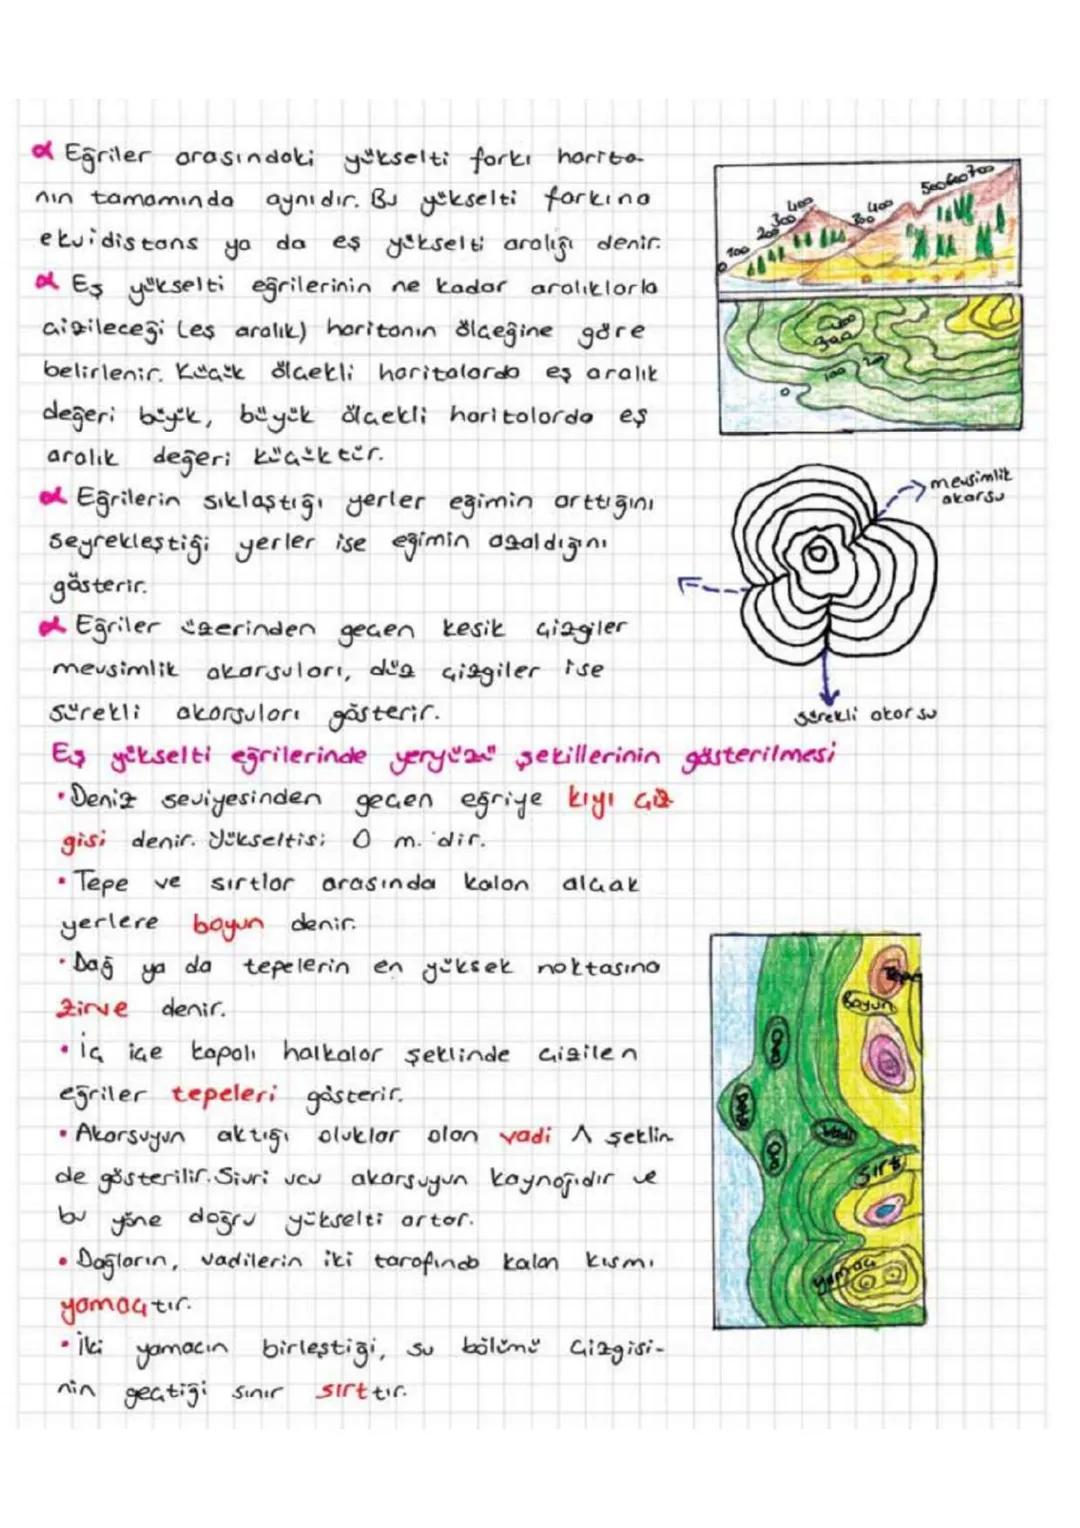 Eğriler arasındaki yükselti farkı harita-
nın tamamında aynıdır. Bu yükselti farkına
ekuidistans ya da eş yükselti aralığı denir.
Eş yükselti eğrilerinin ne kadar aralıklarla
çizileceği (eş aralık) haritanın ölçeğine göre
belirlenir. Küçük ölçekli haritalarda eş aralık
değeri büyük, büyük ölçekli haritalarda eş
aralık değeri küçüktür.
Eğrilerin sıklaştığı yerler eğimin arttığını
seyrekleştiği yerler ise eğimin azaldığını
gösterir.
Eğriler üzerinden geçen kesik çizgiler
mevsimlik akarsuları, düz çizgiler ise
sürekli akarsuları gösterir.
0 100 200 300 400 300 400 500 600 700
300
0 100 200
mevsimlik
akarsu
sürekli akarsu
Eş yükselti eğrilerinde yeryüzü şekillerinin gösterilmesi
• Deniz seviyesinden geçen eğriye kıyı çiz
gisi denir. Yükseltisi 0 m.'dir.
• Tepe ve sırtlar arasında kalan alçak
yerlere boyun denir.
• Dağ ya da tepelerin en yüksek noktasına
zirve denir.
• İç içe kapalı halkalar şeklinde çizilen
eğriler tepeleri gösterir.
• Akarsuyun aktığı oluklar olan vadi Λ şeklin-
de gösterilir. Sivri ucu akarsuyun kaynağıdır ve
bu yöne doğru yükselti artar.
• Dağların, vadilerin iki tarafında kalan kısmı
yamaçtır.
• İki yamacın birleştiği, su bölümü çizgisi-
nin geçtiği sınır sırttır.
Tepe
Boyun
Ova
Delta
Vadi
Ova
Sırt
Yamaç